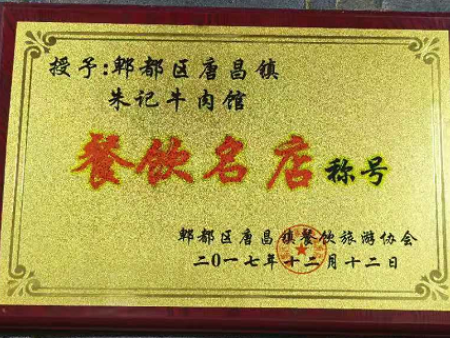 授予:郫都区唐昌镇
朱记牛肉馆
餐饮名店称号
郫都区唐昌镇餐饮旅游协会
二0一七年十二月十二日